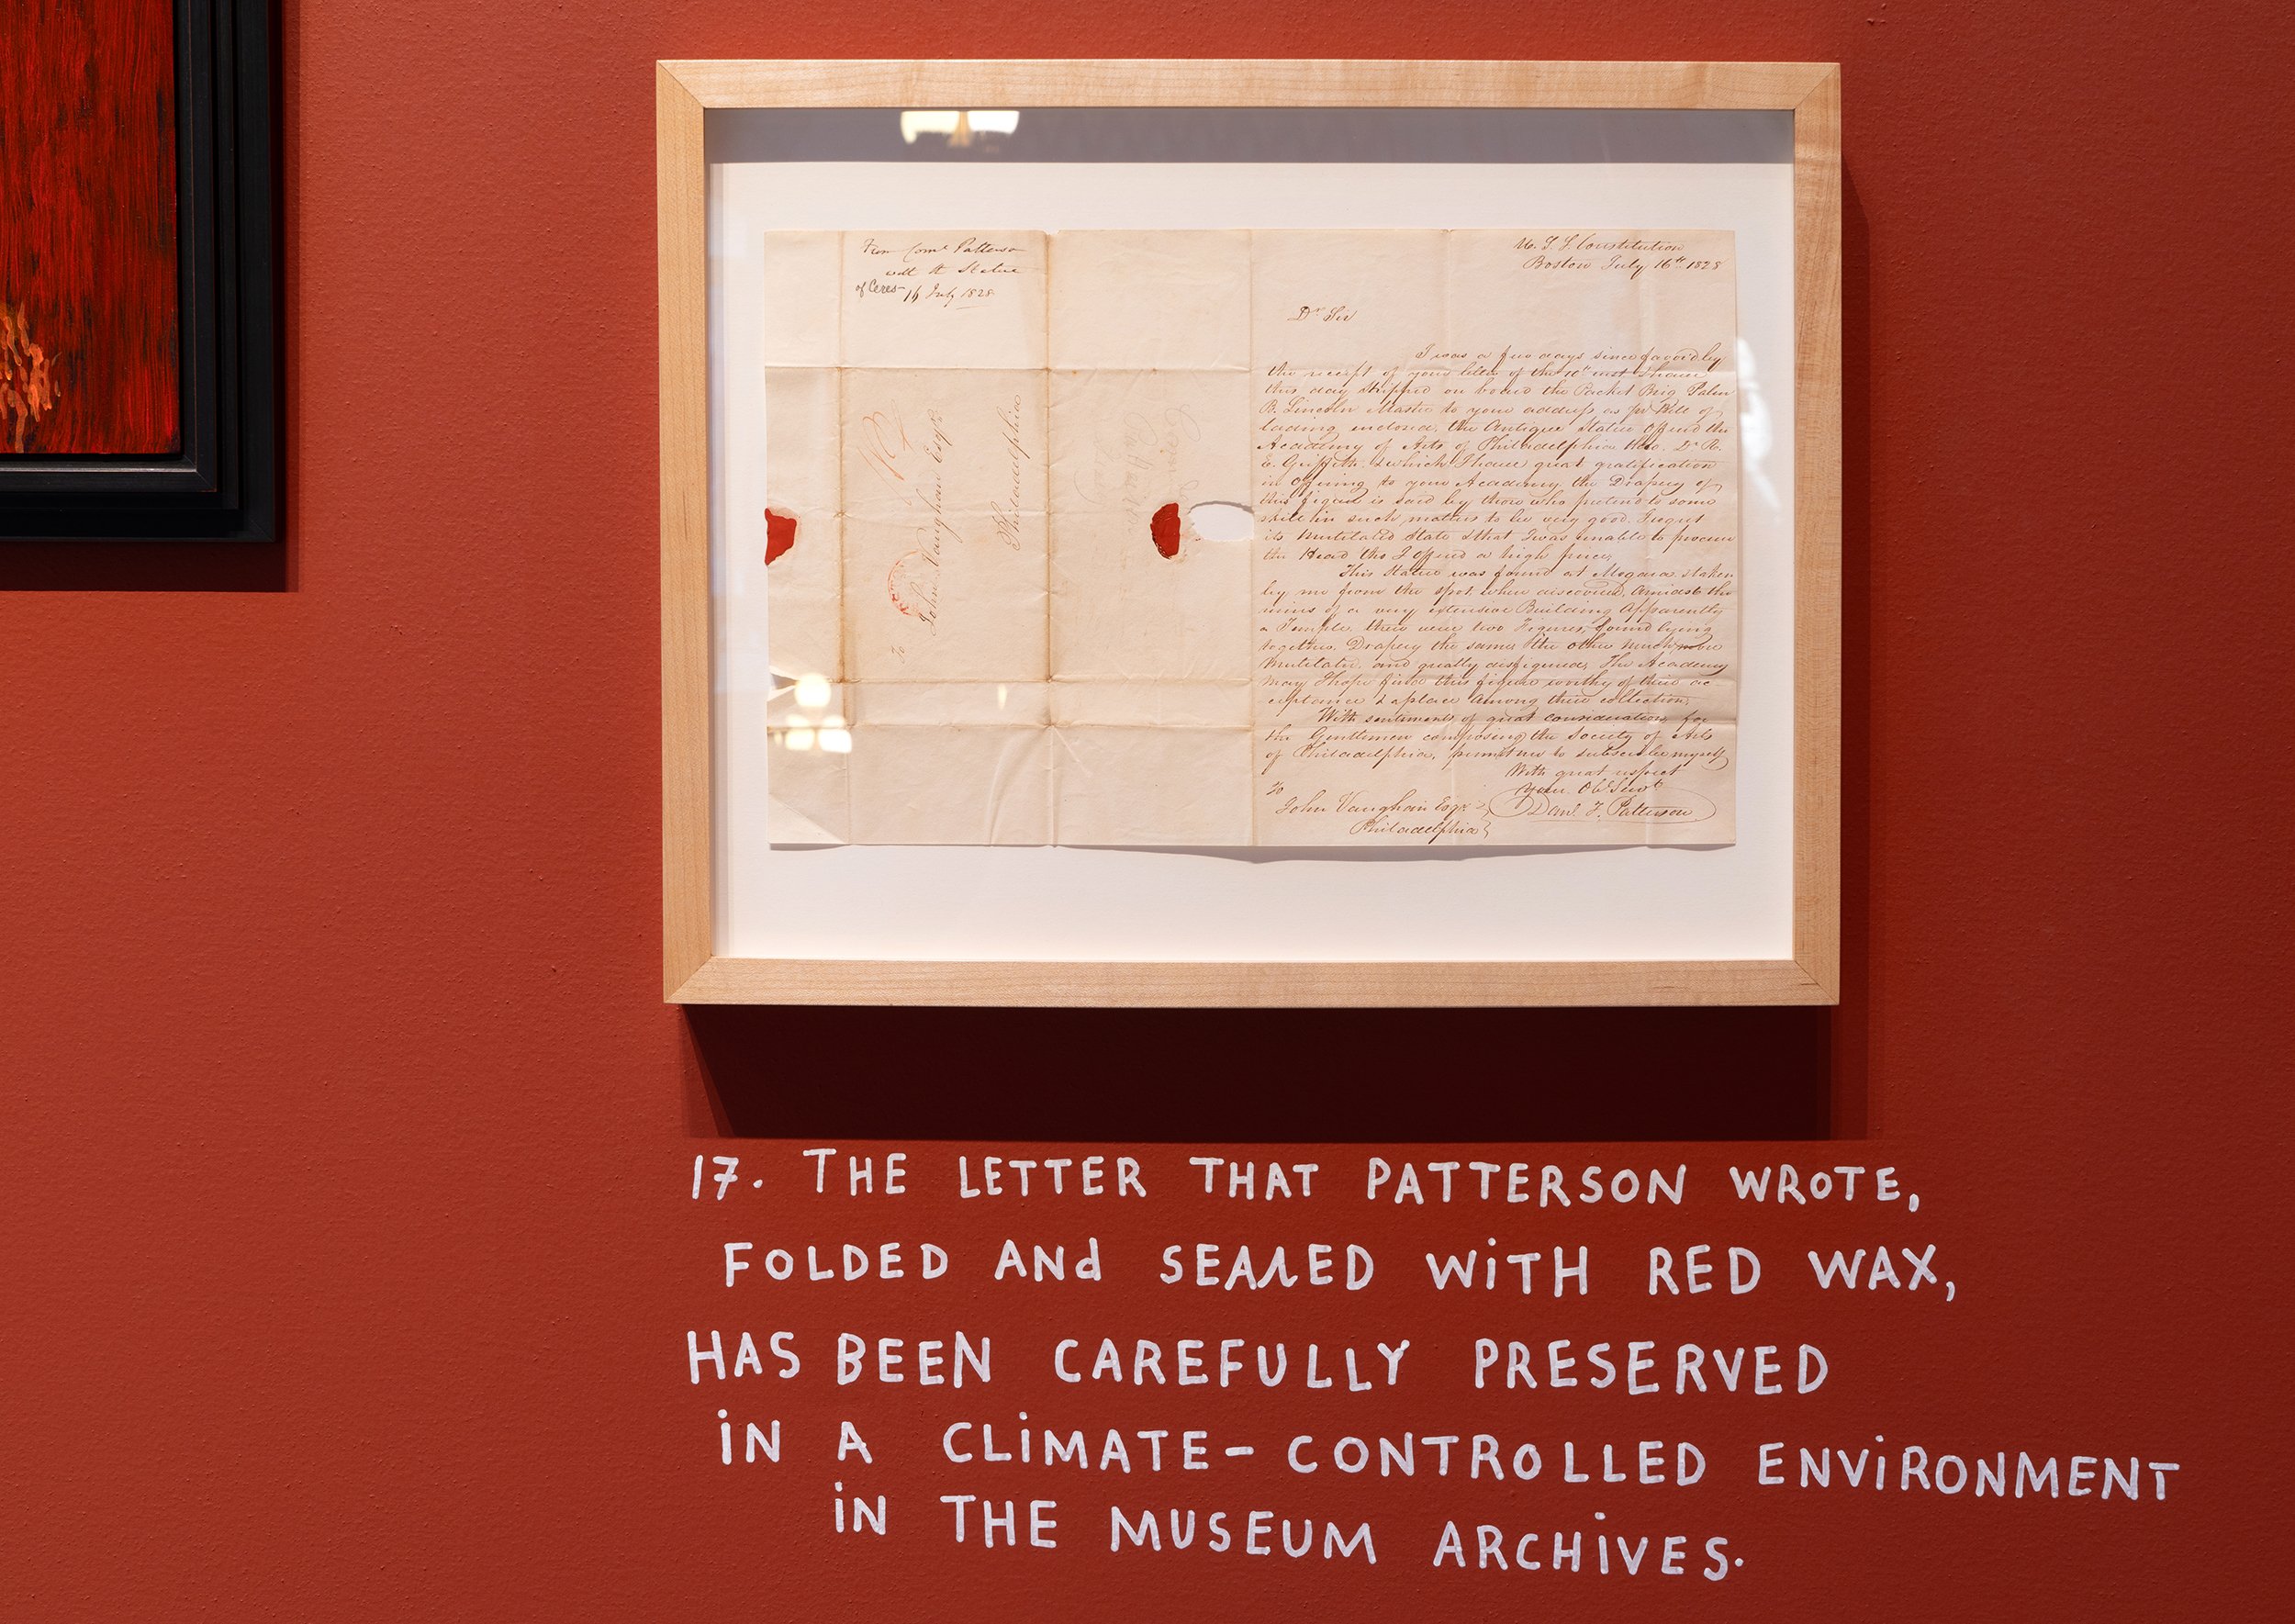 From Comr Patterson
with the Statue
of Ceres 16 July 1828
To
John Vaughan Esqr
Philadelphia
U. S. S. Constitution
Boston July 16th 1828
Dr Sir
I was a few days since favoid by
the receipt of your letter of the 10th inst I have
this day shipped on board the Packet Brig Palm
B. Lincoln Master to your address as pr Bill of
lading enclosed, the Antique Statue offerd the
Academy of Arts of Philadelphia thro. Dr R.
E. Griffith, & which I have great gratification
in offering to your Academy, the Drapery of
this figure is said by those who pretend to some
skill in such matters to be very good. I regret
its Mutilated State & that I was unable to procure
the Head tho I offered a high price,
This Statue was found at Megara & taken
by me from the spot when discovered, amidst the
ruins of a very extensive Building Apparently
a Temple, there were two Figures, found lying
together, Drapery the same, the other much more
Mutilated, and greatly disfigured, The Academy
may I hope find this figure worthy of their ac-
ceptance & a place among their collection,
With sentiments of great consideration, for
the Gentlemen composing the Society of Arts
of Philadelphia, permit me to subscribe myself
With great respect
Your Obt Servt
Danl T. Patterson
To
John Vaughan Esqr
Philadelphia
17. THE LETTER THAT PATTERSON WROTE,
FOLDED ANd SEALED WiTH RED WAX,
HAS BEEN CAREFULLY PRESERVED
iN A CLiMATE-CONTROLLED ENViRONMENT
iN THE MUSEUM ARCHiVES.